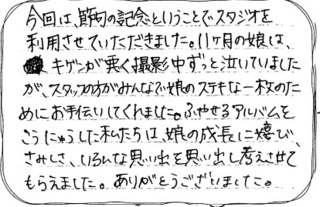 今回は、節句の記念ということでスタジオを
利用させていただきました。11ヶ月の娘は、
キゲンが悪く撮影中ずっと泣いていました
が、スタッフの方がみんなで娘のステキな一枚のた
めにお手伝いしてくれました。ふやせるアルバムを
こうにゅうした私たちは、娘の成長に嬉しさ、
さみしさ、いろんな思い出を思い出し考えさせて
もらえました。ありがとうございました。